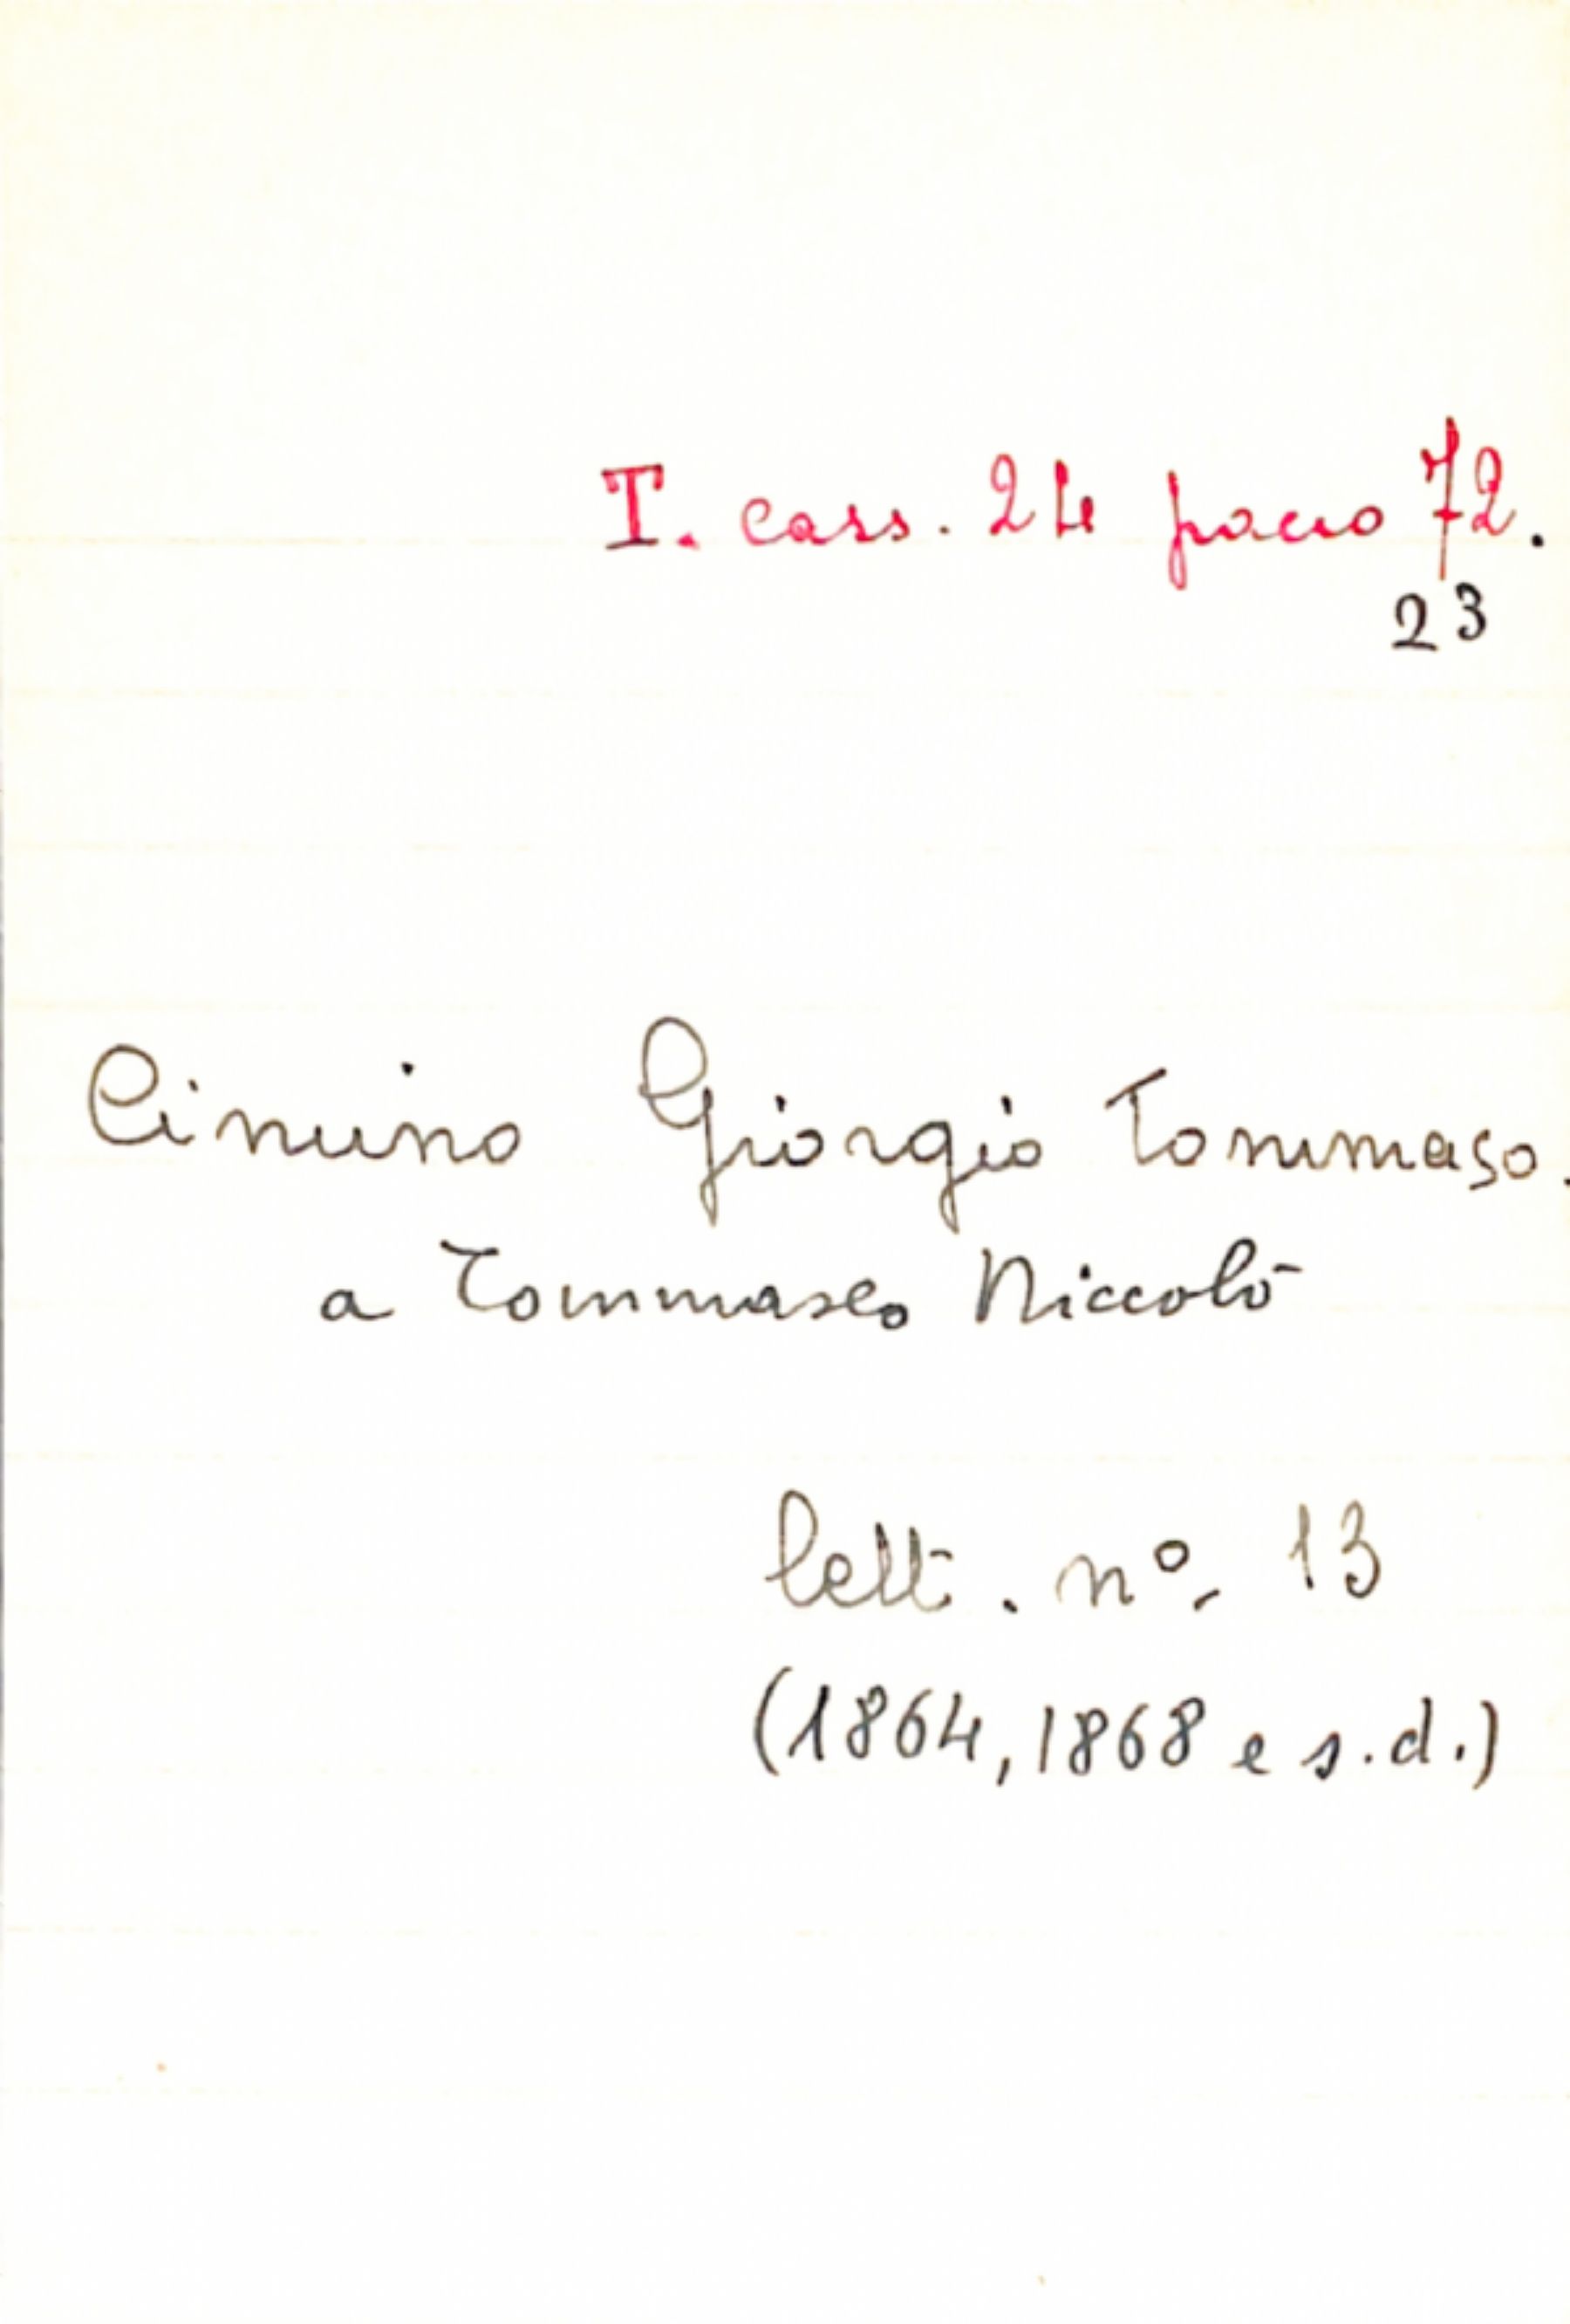 T. cass. 24 pacco 72.
23
Cimino Giorgio Tommaso.
a Tommaseo Niccolò
lett. nº. 13
(1864, 1868 e s.d.)